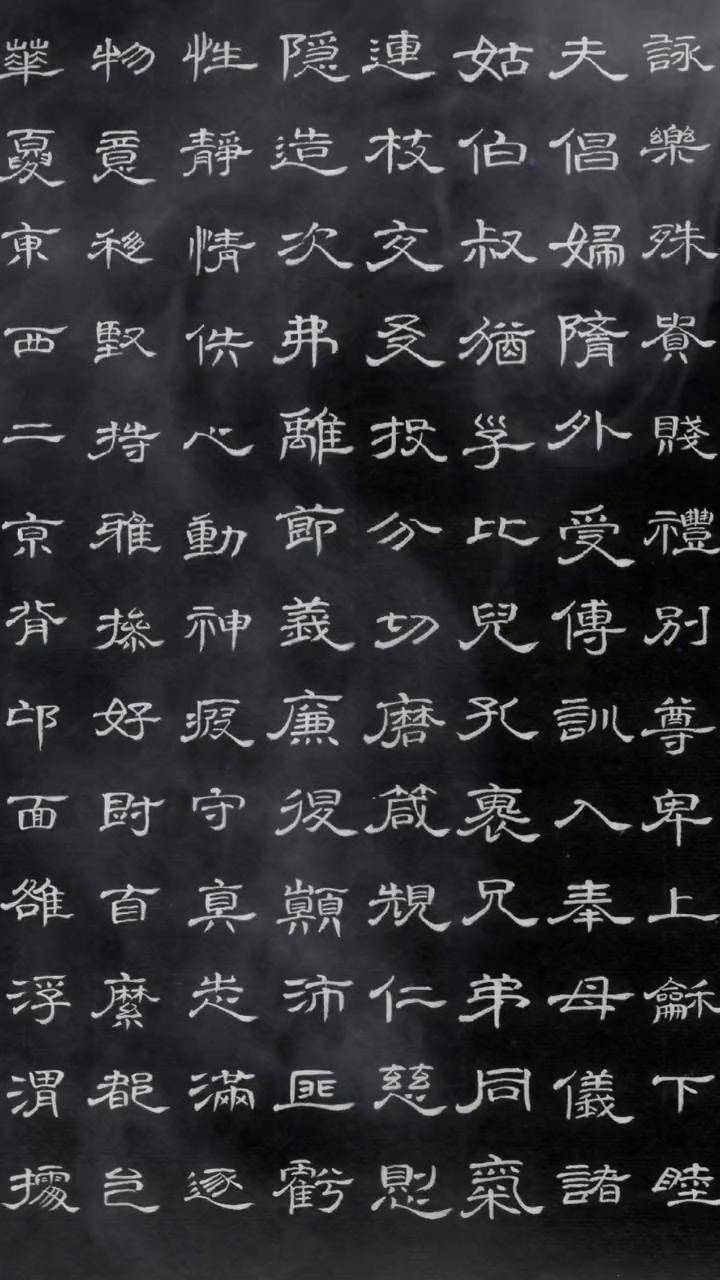 詠樂殊貴賤禮別尊卑上龢下睦
夫倡婦隨外受傅訓入奉母儀諸
姑伯叔猶子比兒孔褱兄弟同氣
連枝交友投分切磨箴規仁慈惻
隱造次弗離節義廉退顛沛匪虧
性靜情佚心動神疲守真志滿逐
物意移堅持雅操好爵自縻都邑
華夏東西二京背邙面雒浮渭據